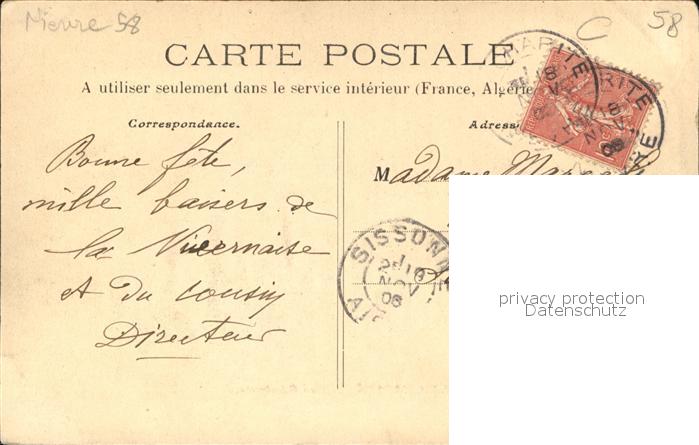 Nievre 58
C
58
CARTE POSTALE
A utiliser seulement dans le service intérieur (France, Algérie
Correspondance.
Adress
Bonne fête,
mille baisers de
la Nivernaise
et du cousin
Directeur
Madame
SISSON
NOV
06
privacy protection
Datenschutz